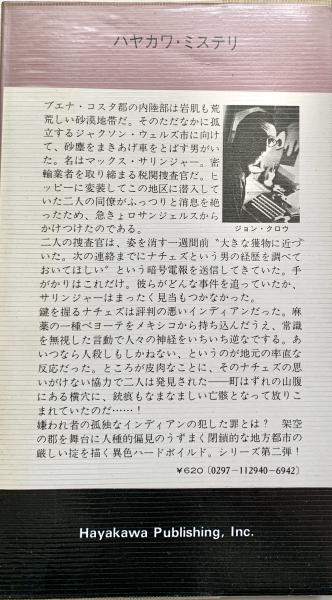 ハヤカワ・ミステリ
ブエナ・コスタ郡の内陸部は岩肌も荒
荒しい砂漠地帯だ。そのただなかに孤
立するジャクソン・ウェルズ市に向け
て、砂塵をまきあげ車をとばす男がい
た。名はマックス・サリンジャー。密
輸業者を取り締まる税関捜査官だ。ヒ
ッピーに変装してこの地区に潜入して
いた二人の同僚がふっつりと消息を絶
ったため、急きょロサンジェルスから
かけつけたのである。
ジョン・クロウ
二人の捜査官は、姿を消す一週間前〝大きな獲物に近づ
いた。次の連絡までにナチェズという男の経歴を調べて
おいてほしい〟という暗号電報を送信してきていた。手
がかりはこれだけ。彼らがどんな事件を追っていたか、
サリンジャーはまったく見当もつかなかった。
鍵を握るナチェズは評判の悪いインディアンだった。麻
薬の一種ペヨーテをメキシコから持ち込んだうえ、常識
を無視した言動で人々の神経をいちいち逆なでする。あ
いつなら人殺しもしかねない、というのが地元の率直な
反応だった。ところが皮肉なことに、そのナチェズの思
いがけない協力で二人は発見された――町はずれの山腹
にある横穴に、銃痕もなまなましい亡骸となって放りこ
まれていたのだ……！
嫌われ者の孤独なインディアンの犯した罪とは？　架空
の郡を舞台に人種的偏見のうずまく閉鎖的な地方都市の
厳しい掟を描く異色ハードボイルド。シリーズ第二弾！
￥620〔0297-112940-6942〕
Hayakawa Publishing, Inc.